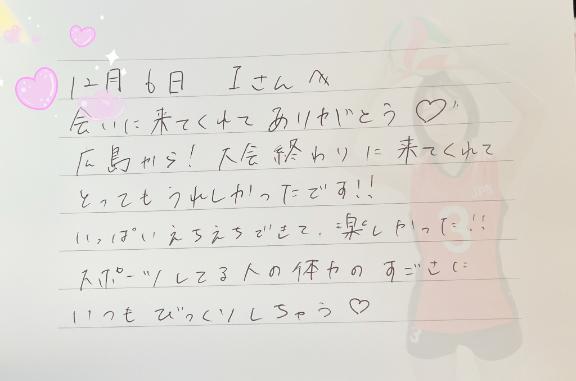 12月6日 Iさんへ
会いに来てくれてありがとう♡
広島から！大会終わりに来てくれて
とってもうれしかったです!!
いっぱいえちえちできて、楽しかった!!
スポーツしてる人の体力のすごさに
いつもびっくりしちゃう♡
3
3